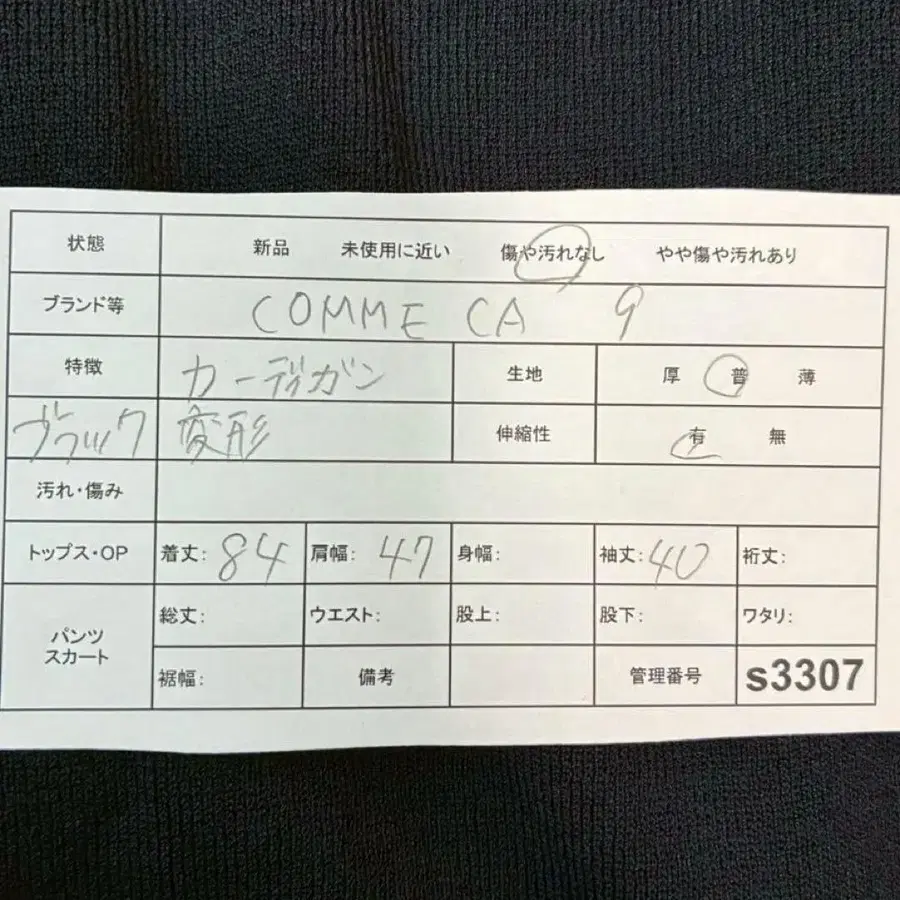 状態 新品 未使用に近い 傷や汚れなし やや傷や汚れあり
ブランド等 COMME CA 9
特徴 カーディガン 生地 厚 普 薄
ブラック 変形 伸縮性 有 無
汚れ・傷み
トップス・OP 着丈: 84 肩幅: 47 身幅: 袖丈: 40 裄丈:
パンツ スカート 総丈: ウエスト: 股上: 股下: ワタリ:
裾幅: 備考 管理番号 s3307